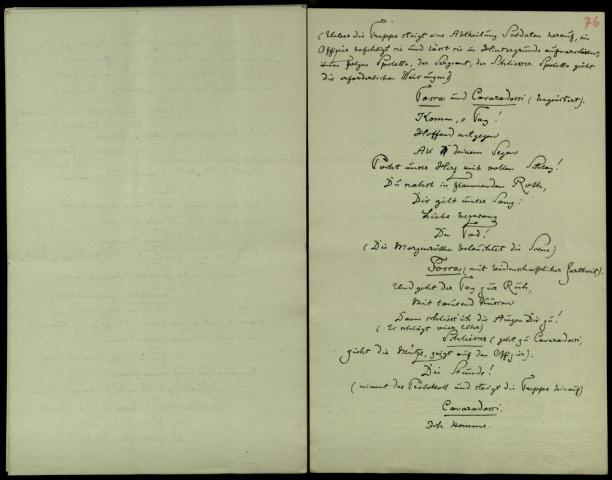 76
(Ueber die Treppe steigt eine Abtheilung Soldaten herauf, ein
Offizier befehligt sie und lässt sie im Hintergrunde aufmarschieren,
ihm folgen Spoletta, der Sergeant, der Schliesser. Spoletta giebt
die erforderlichen Weisungen)
Tosca und Cavaradossi (begeistert).
Komm, o Tag!
Hoffend entgegen
All deinem Segen
Pocht unser Herz mit vollem Schlag!
Du nahst in flammendem Roth,
Dir gilt unser Sang:
Liebe
Den Tod!
(Die Morgenröthe beleuchtet die Scene)
Tosca (mit leidenschaftlicher Zartheit).
Und geht der Tag zur Ruh,
Mit tausend Küssen
Dann schliess' ich die Augen Dir zu!
(Es schlägt vier Uhr)
Schliesser (geht zu Cavaradossi,
zieht die Mütze, zeigt auf den Offizier).
Die Stunde!
(nimmt das Protokoll und steigt die Treppe hinauf)
Cavaradossi.
Ich komme.